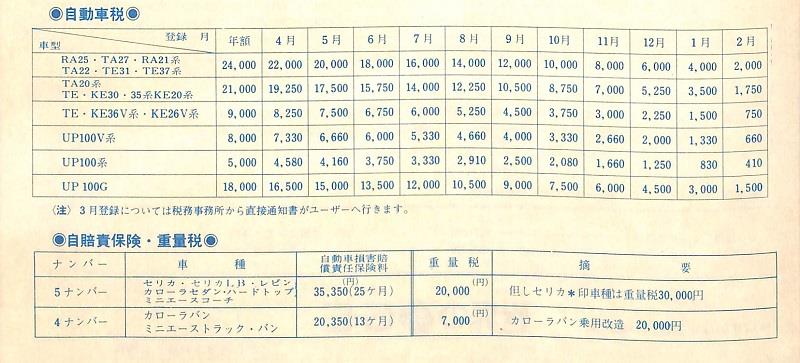 ◉自動車税◉
登録 月
車型
年額 4月 5月 6月 7月 8月 9月 10月 11月 12月 1月 2月
RA25・TA27・RA21系
TA22・TE31・TE37系
24,000 22,000 20,000 18,000 16,000 14,000 12,000 10,000 8,000 6,000 4,000 2,000
TA20系
TE・KE30・35系KE20系
21,000 19,250 17,500 15,750 14,000 12,250 10,500 8,750 7,000 5,250 3,500 1,750
TE・KE36V系・KE26V系 9,000 8,250 7,500 6,750 6,000 5,250 4,500 3,750 3,000 2,250 1,500 750
UP100V系 8,000 7,330 6,660 6,000 5,330 4,660 4,000 3,330 2,660 2,000 1,330 660
UP100系 5,000 4,580 4,160 3,750 3,330 2,910 2,500 2,080 1,660 1,250 830 410
UP 100G 18,000 16,500 15,000 13,500 12,000 10,500 9,000 7,500 6,000 4,500 3,000 1,500
〈注〉 3月登録については税務事務所から直接通知書がユーザーへ行きます。
◉自賠責保険・重量税◉
ナンバー 車種 自動車損害賠
償責任保険料 重量税 摘要
5ナンバー
セリカ・セリカLB・レビン
カローラセダン・ハードトップ
ミニエースコーチ
(円)
35,350(25ケ月) 20,000(円) 但しセリカ＊印車種は重量税30,000円
4ナンバー
カローラバン
ミニエーストラック・バン
20,350(13ケ月) 7,000(円) カローラバン乗用改造 20,000円